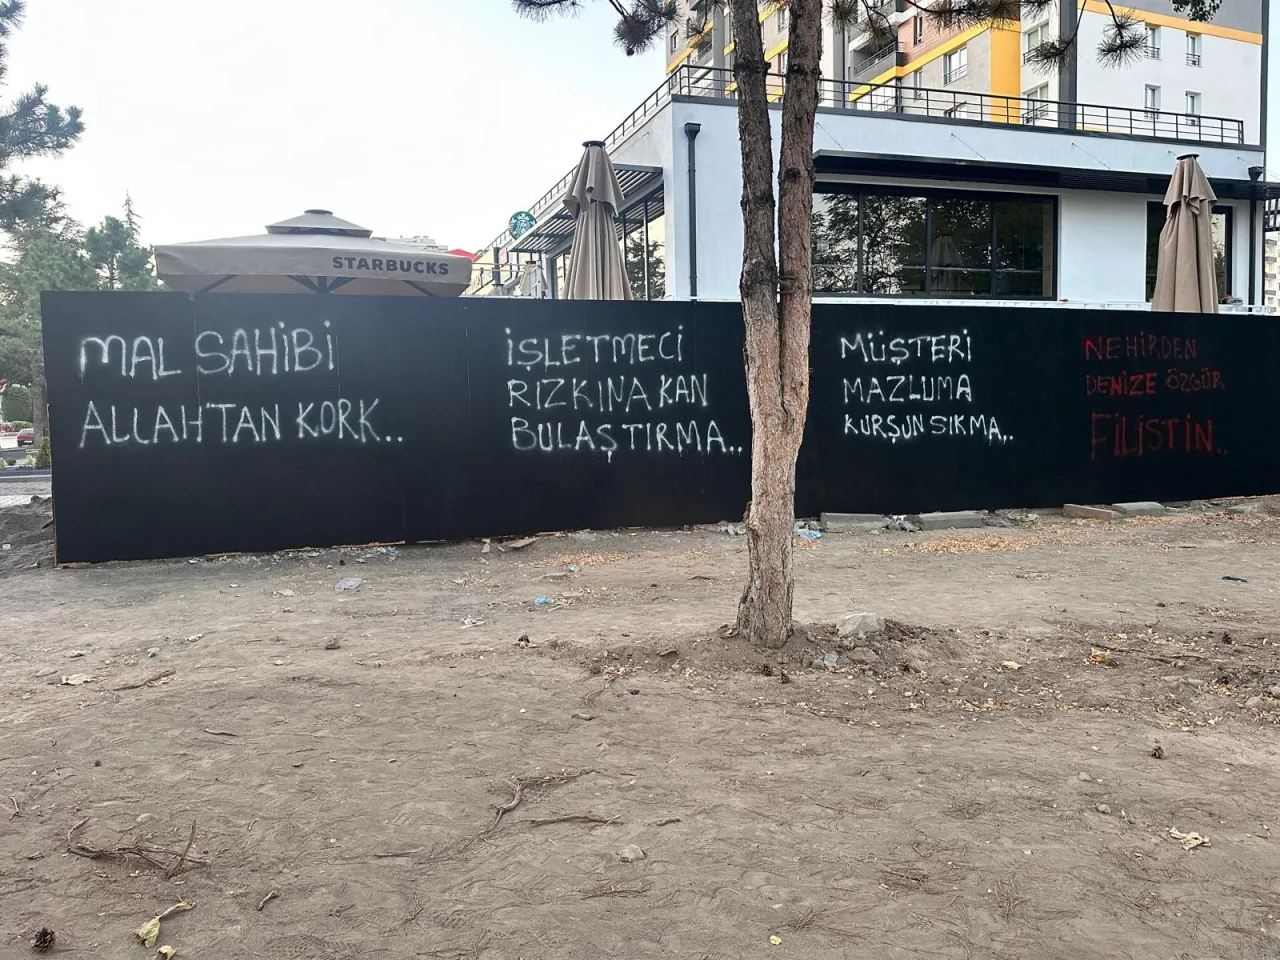 STARBUCKS
MAL SAHİBİ
ALLAH'TAN KORK..
İŞLETMECİ
RIZKINA KAN
BULAŞTIRMA..
MÜŞTERİ
MAZLUMA
KURŞUN SIKMA..
NEHİRDEN
DENİZE ÖZGÜR
FİLİSTİN..